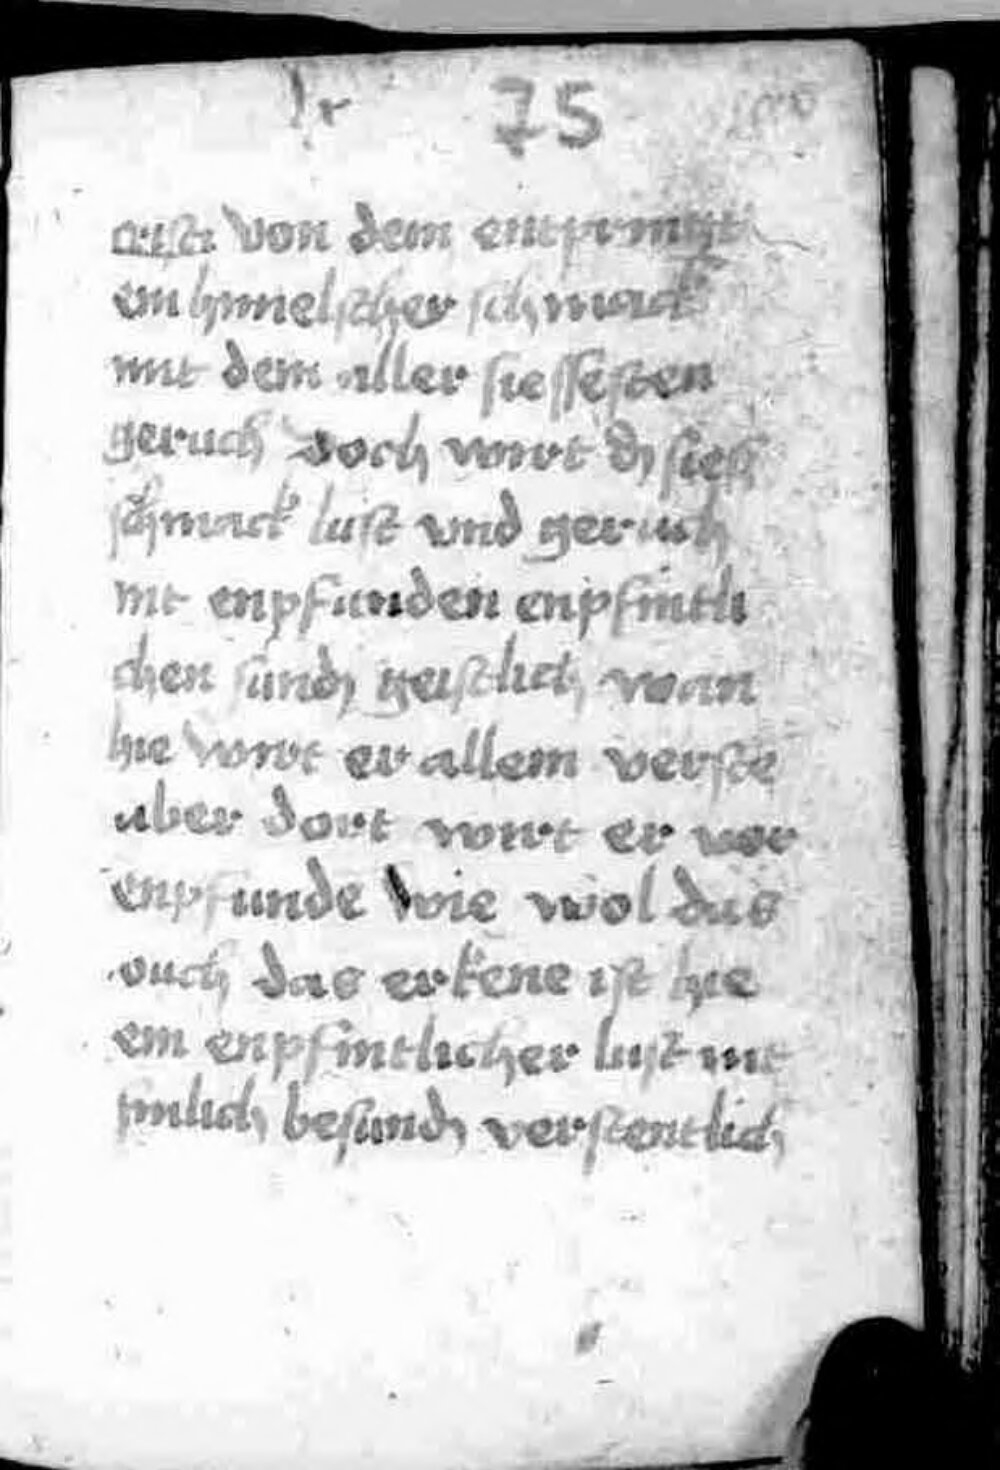 75
von dem entprinngt
ein himelscher schmack
mit dem aller siessesten
geruch doch wirt dʒ siess
schmack lust vnd geruch
nit enpfunden enpfintli
chen sundʒ geistlich wan
hie wirt er allein verste
aber dort wirt er vor
enpfunde wie wol das
ouch das erkene ist hie
ein enpfintlicher lust nit
sinlich besundʒ verstentlich